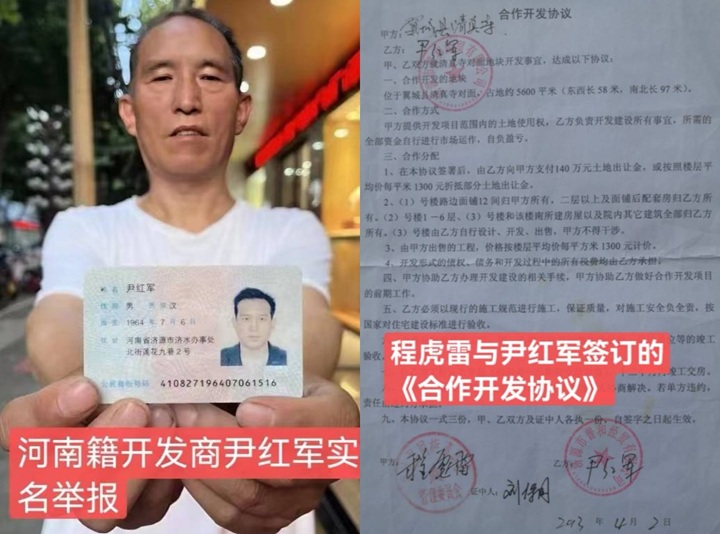 姓名 尹红军
性别 男 民族 汉
出生 1964 年 7 月 6 日
住址 河南省济源市济水办事处
北街莲花九巷2号
公民身份号码 410827196407061516
河南籍开发商尹红军实
名举报
合作开发协议
甲方:
乙方: 尹红军
甲、乙双方就清真寺对面地块开发事宜,达成以下协议:
一、合作开发的地块
位于翼城县清真寺对面,占地约 5600 平米(东西长 58 米,南北长 97 米)。
二、合作方式
甲方提供开发项目范围内的土地使用权,乙方负责开发建设所有事宜,所需的
全部资金自行进行市场运作,自负盈亏。
三、合作分配
1、在本协议签署后,由乙方向甲方支付140 万元土地出让金,或按照楼层平
均价每平米 1300 元折抵部分土地出让金。
2、(1)号楼路边面铺12 间归甲方所有,二层以上及面铺后配套房归乙方所
有。(2)号楼1-6层、(3)号楼和该楼南所建房屋以及院内其它建筑全部归乙方所
有。(3)号楼由乙方自行设计、开发、出售,甲方不得干涉。
3、由甲方出售的工程,价格按楼层平均价每平方米 1300 元计价。
4、开发形式的债权、债务和开发过程中的所有税费均由乙方承担。
四、甲方协助乙方办理开发建设的相关手续,甲方协助乙方做好合作开发项目
的前期工作。
五、乙方必须以现行的施工规范进行施工,保证质量,对施工安全负全责,按
国家对住宅建设标准进行验收。
程虎雷与尹红军签订的
《合作开发协议》
九、本协议一式三份,甲、乙双方及证中人各执一份,自签字之日起生效。
甲方: 程虎雷 乙方: 尹红军
管理委员会
证中人:
年 4 月 2 日